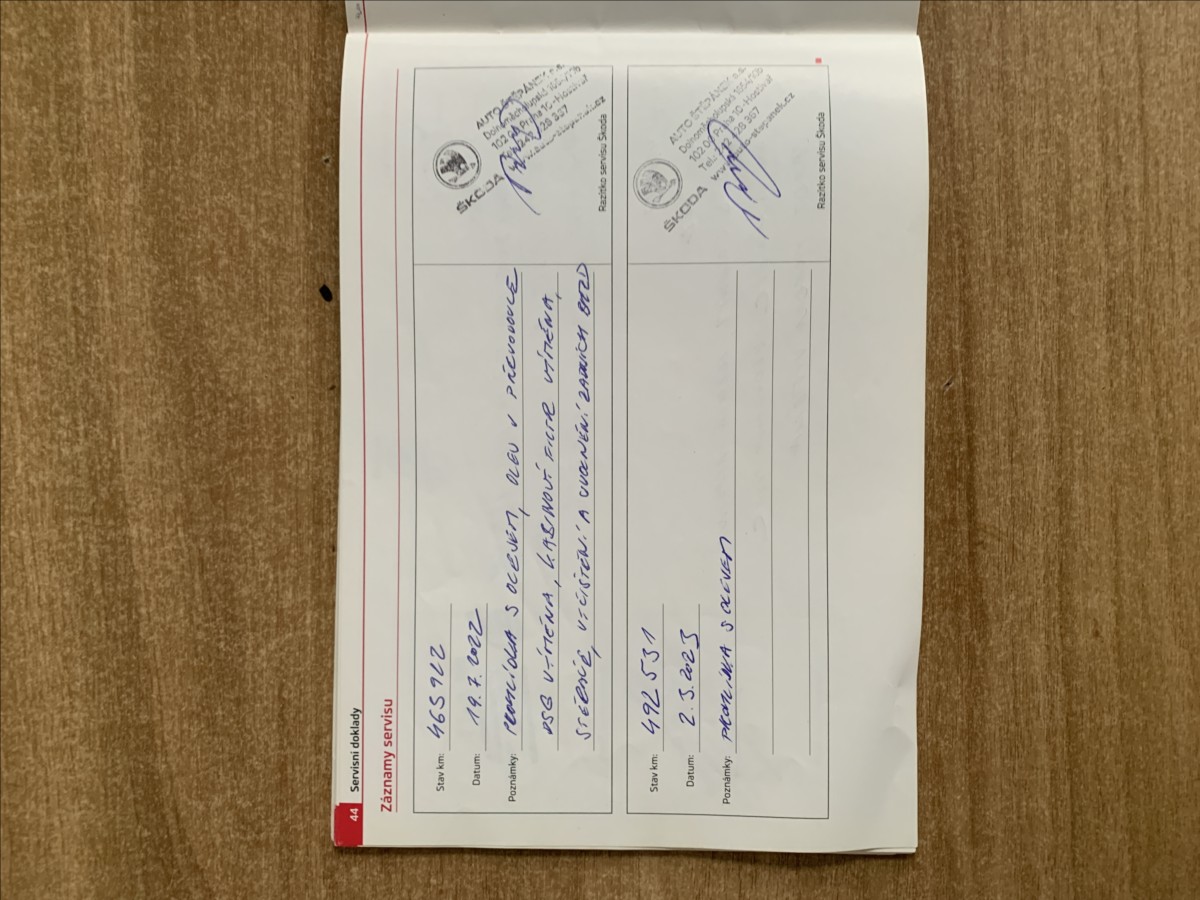 44
Servisní doklady
Záznamy servisu
Stav km:
Datum: 19.7.2022
Poznámky: PROHLÍDKA S OLEJEM, OLEJ V PŘEVODOVCE
DSG VÝMĚNA, KABINOVÝ FILTR VÝMĚNA,
STĚRAČE, VYČIŠTĚNÍ A UVOLNĚNÍ ZADNÍCH BRZD
ŠKODA
AUTO ŠTĚPÁNEK a.s.
Dolnoměcholupská
102 00 Praha 10 - Hostivař
www.auto-stepanek.cz
Razítko servisu Škoda
Stav km: 492531
Datum: 2.3.2023
Poznámky: PROHLÍDKA S OLEJEM
ŠKODA
AUTO ŠTĚPÁNEK a.s.
102 00 Praha 10 - Hostivař
www.auto-stepanek.cz
Razítko servisu Škoda